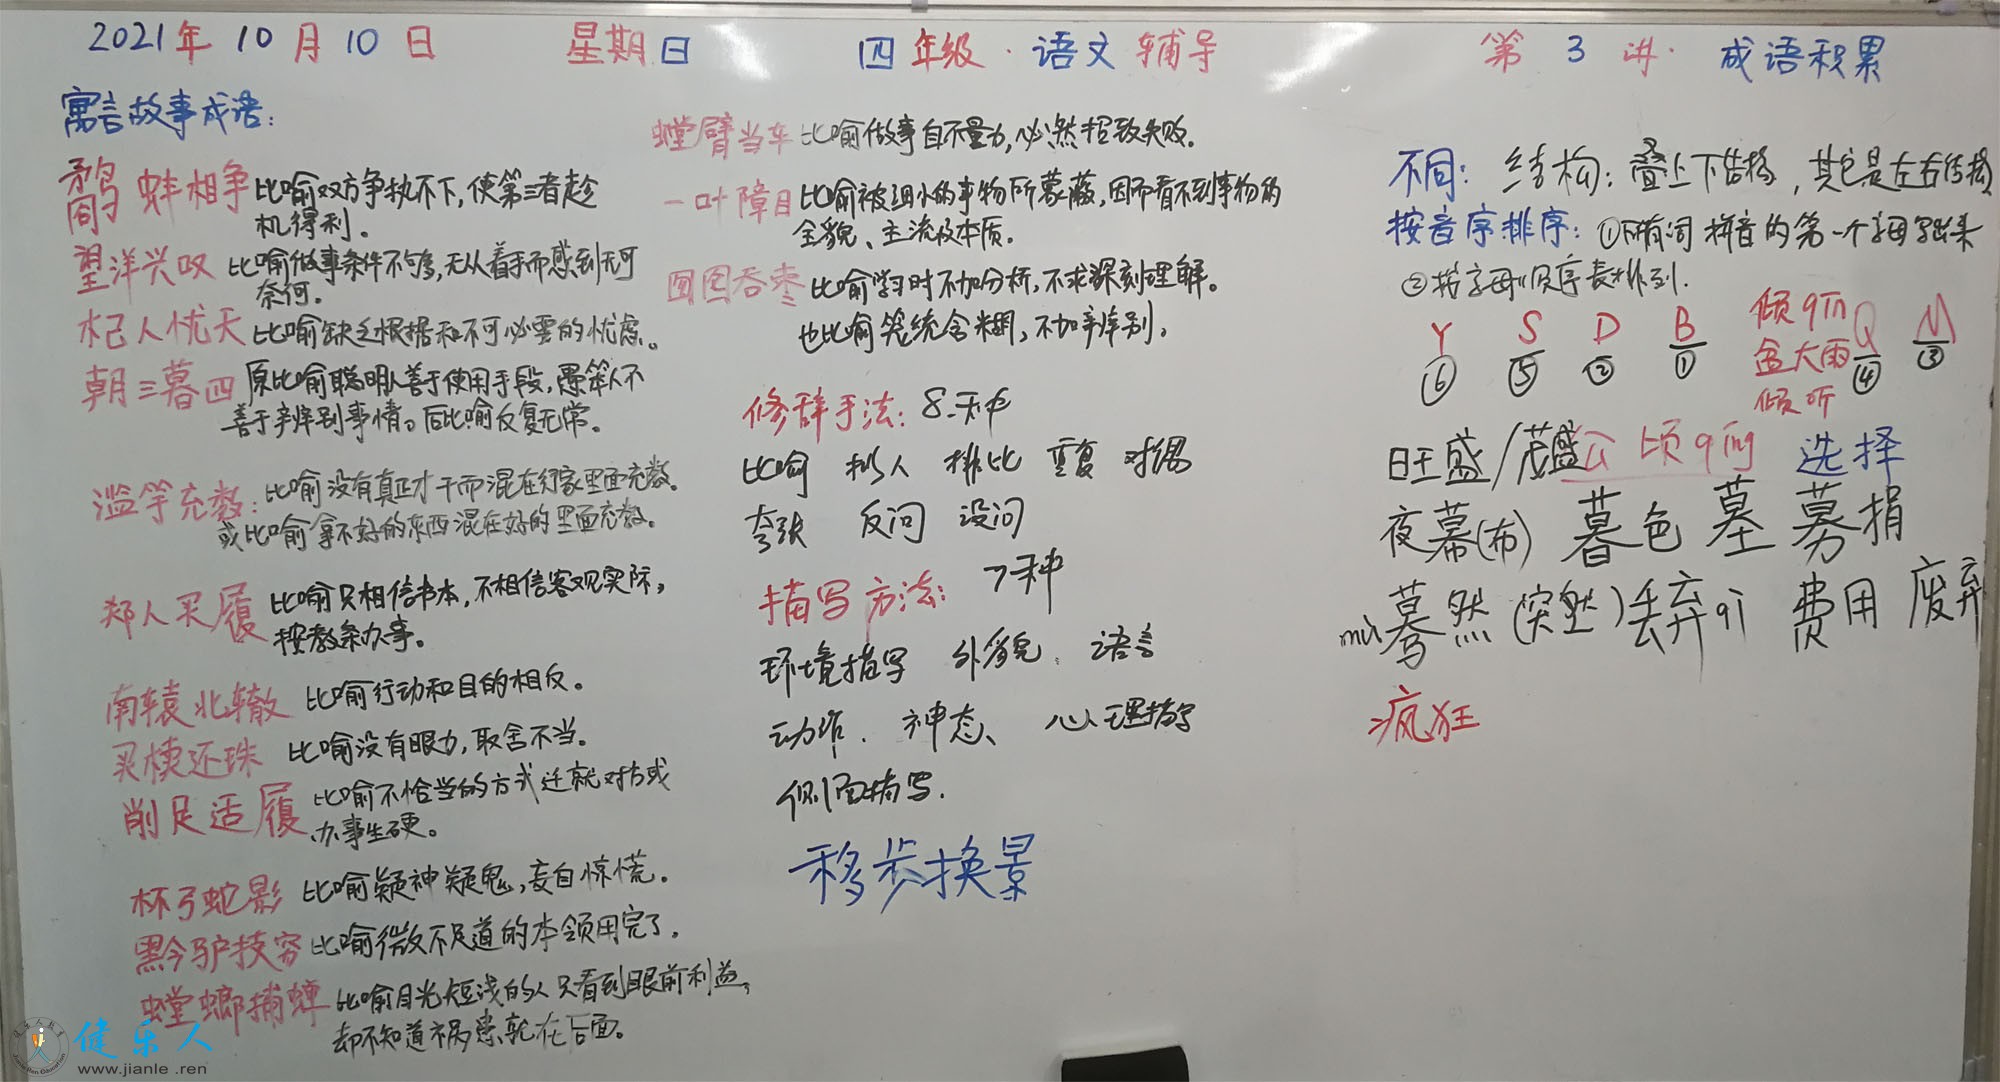 2021年10月10日 星期日 四年级·语文辅导 第3讲·成语积累
寓言故事成语:
鹬蚌相争 比喻双方争执不下,使第三者趁
机得利。
望洋兴叹 比喻做事条件不够,无从着手而感到无可
奈何.
杞人忧天 比喻缺乏根据和不可必要的忧虑。
朝三暮四 原比喻聪明人善于使用手段,愚笨人不
善于辨别事情。后比喻反复无常。
滥竽充数: 比喻没有真正才干而混在行家里面充数。
或比喻拿不好的东西混在好的里面充数。
郑人买履 比喻只相信书本,不相信客观实际,
按教条办事。
南辕北辙 比喻行动和目的相反。
买椟还珠 比喻没有眼力,取舍不当。
削足适履 比喻不恰当的方式迁就对方或
办事生硬。
杯弓蛇影 比喻疑神疑鬼,妄自惊慌。
黔驴技穷 比喻微不足道的本领用完了.
螳螂捕蝉 比喻目光短浅的人只看到眼前利益,
却不知道祸患就在后面。
螳臂当车 比喻做事自不量力,必然招致失败。
一叶障目 比喻被细小的事物所蒙蔽,因而看不到事物的
全貌、主流及本质.
囫囵吞枣 比喻学习时不加分析,不求深刻理解。
也比喻笼统含糊,不加辨别。
修辞手法: 8种
比喻 拟人 排比 重复 对偶
夸张 反问 设问
描写方法: 7种
环境描写 外貌、语言
动作、神态、心理描写
侧面描写.
移步换景
不同: 结构: 叠上下结构,其它是左右结构
按音序排序: ①所有词拼音的第一个字母写出来
②按字母顺序表排列.
Y S D B Q M
⑥ ⑤ ② ① ④ ③
倾qīn
盆大雨
倾听
旺盛/茂盛 公顷qǐng 选择
夜幕(布) 暮色 墓 募捐
mù 蓦然(突然) 丢弃qì 费用 废弃
疯狂
健乐人
www.jianle.ren